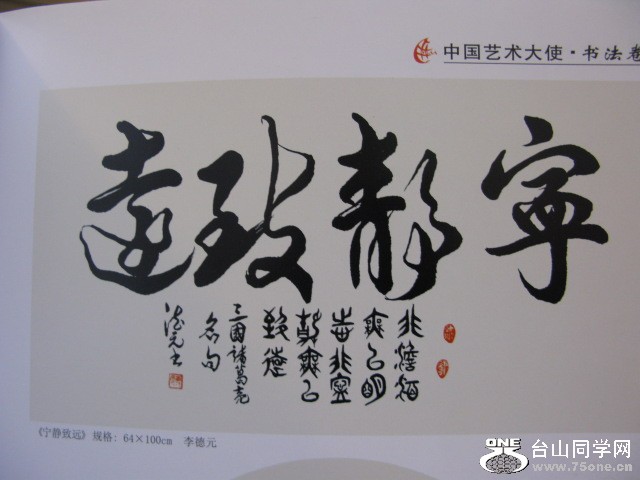 中国艺术大使·书法卷
寧靜致遠
非澹泊
無以明
志非寧
靜無以
致遠
三國諸葛亮
名句
德元书
《宁静致远》 规格：64×100cm 李德元
ONE
台山同学网
www.75one.cn